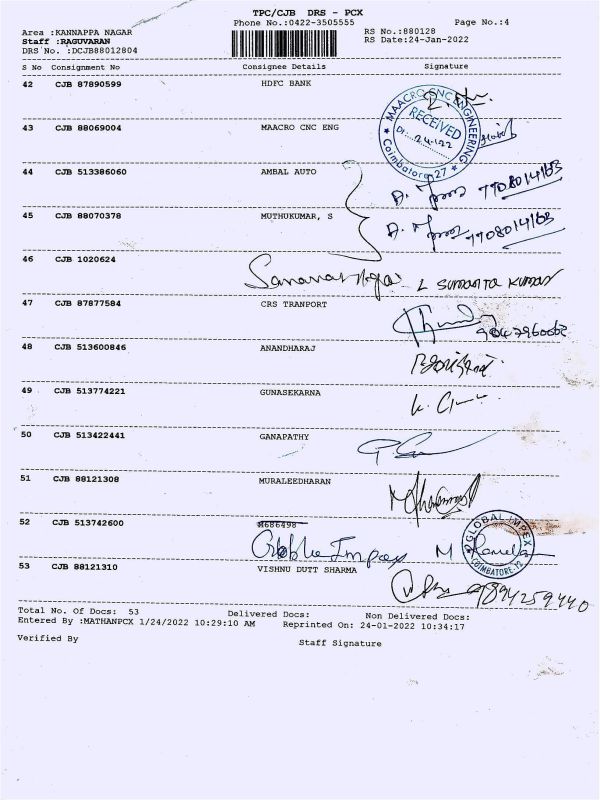 TPC/CJB DRS - PCX
Phone No.:0422-3505555 Page No.:4
Area :KANNAPPA NAGAR RS No.:880128
Staff :RAGUVARAN RS Date:24-Jan-2022
DRS No. :DCJB88012804
S No Consignment No Consignee Details Signature
42 CJB 87890599 HDFC BANK
43 CJB 88069004 MAACRO CNC ENG
MAACRO CNC ENGINEERING
RECEIVED
Coimbatore 27
44 CJB 513386060 AMBAL AUTO
7708014163
45 CJB 88070378 MUTHUKUMAR, S
7708014163
46 CJB 1020624
L Sumanta Kumar
47 CJB 87877584 CRS TRANPORT
48 CJB 513600846 ANANDHARAJ
49 CJB 513774221 GUNASEKARNA
50 CJB 513422441 GANAPATHY
51 CJB 88121308 MURALEEDHARAN
52 CJB 513742600 M686498
Impex M
GLOBAL IMPEX
COIMBATORE-12
53 CJB 88121310 VISHNU DUTT SHARMA
9894259440
Total No. Of Docs: 53 Delivered Docs: Non Delivered Docs:
Entered By :MATHANPCX 1/24/2022 10:29:10 AM Reprinted On: 24-01-2022 10:34:17
Verified By Staff Signature